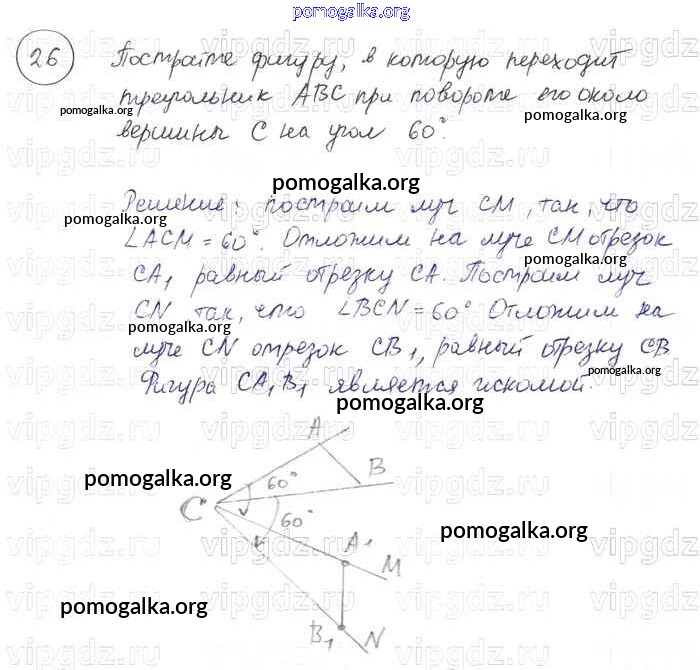 pomogalka.org
26 Постройте фигуру, в которую переходит
треугольник ABC при повороте его около
pomogalka.org pomogalka.org
вершины C на угол 60°.
pomogalka.org
Решение: построим луч CM, так, что
pomogalka.org
∠ACM = 60°. Отложим на луче CM отрезок
CA₁ равный отрезку CA. Построим луч
CN так, что ∠BCN = 60° Отложим на
pomogalka.org
луче CN отрезок CB₁, равный отрезку CB
pomogalka.org
Фигура CA₁B₁ является искомой.
pomogalka.org
A
B
pomogalka.org 60°
C
60°
pomogalka.org
A₁
M
pomogalka.org
B₁ N